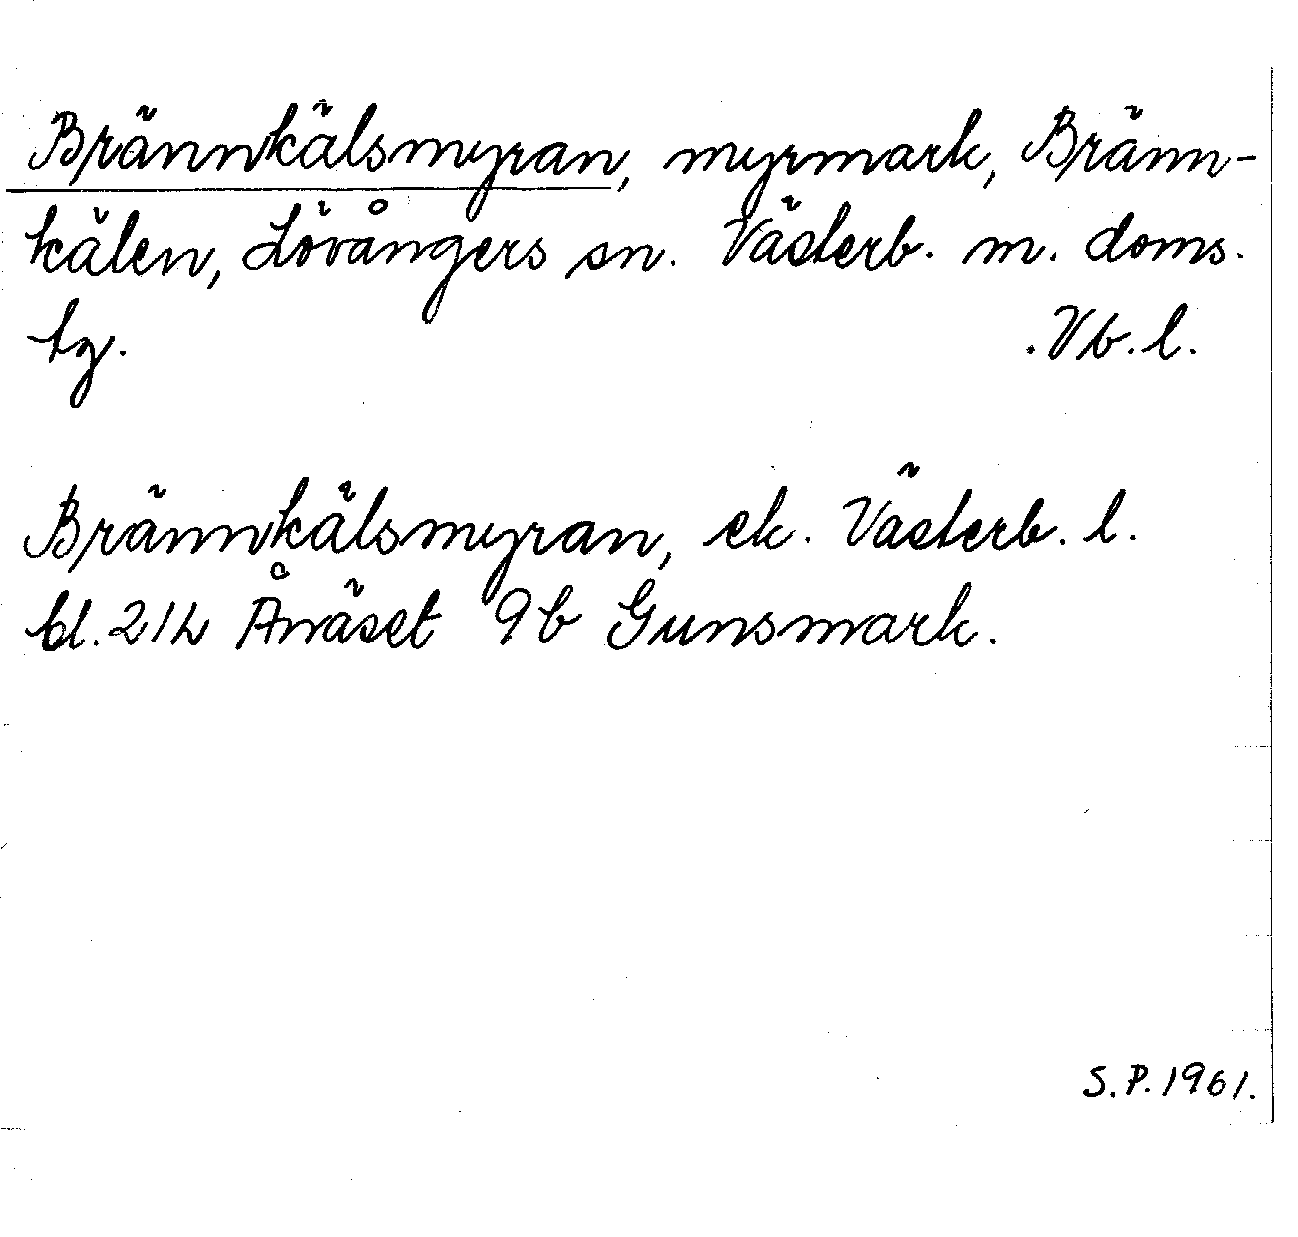 Brännkälsmyran, myrmark, Bränn-
kälen, Lövångers sn. Västerb. m. doms.
tg. .Vb.l.
Brännkälsmyran, ek. Västerb. l.
bl. 21L Ånäset 9b Gunsmark.
S.P. 1961.